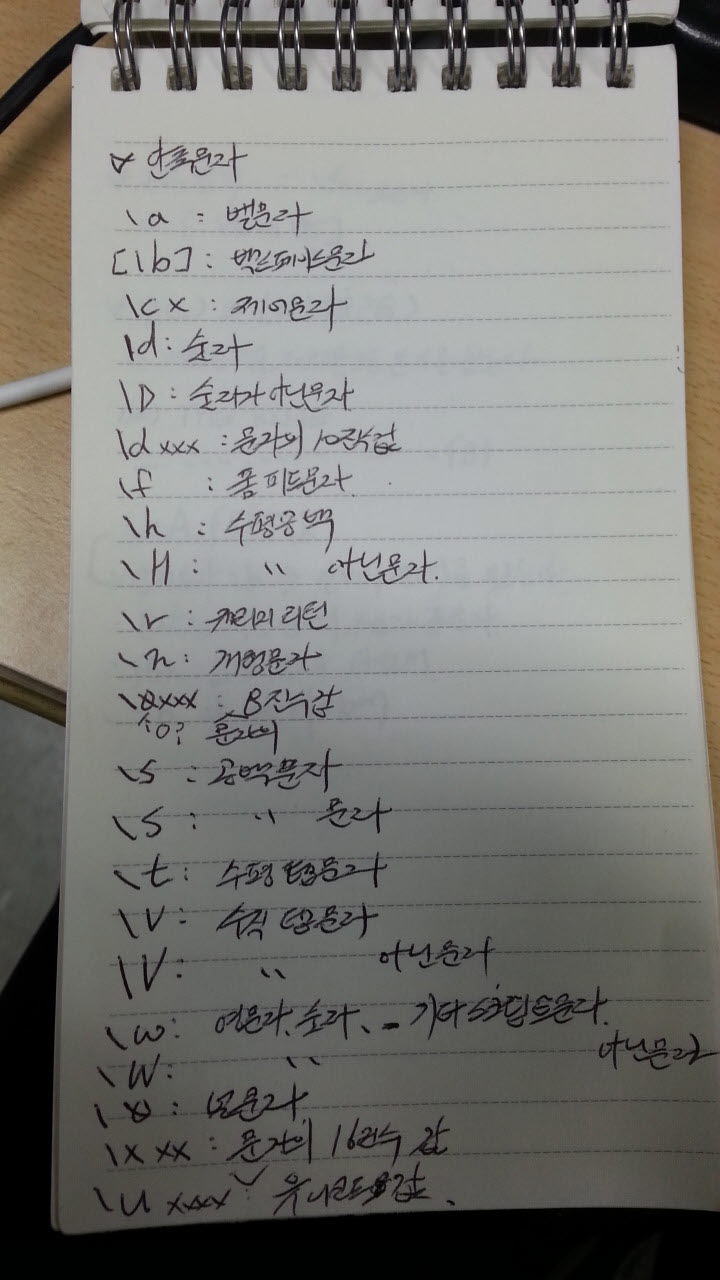 ∀ 안료문자
\a : 벨문자
[\b] : 백스페이스문자
\cx : 제어문자
\d : 숫자
\D : 숫자가 아닌문자
\dxxx : 문자의 10진수값
\f : 폼피드문자
\h : 수평공백
\H : 〃 아닌문자.
\r : 캐리지 리턴
\n : 개행문자
\oxxx : 8진수값
↑o? 문자의
\s : 공백문자
\S : 〃 문자
\t : 수평 탭문자
\v : 수직 탭문자
\V : 〃 아닌문자
\w : 영문자, 숫자, _ 기타 스크립트문자.
\W : 〃 아닌문자
\0 : 널문자
\xxx : 문자의 16진수 값
\uxxxx : 유니코드값.